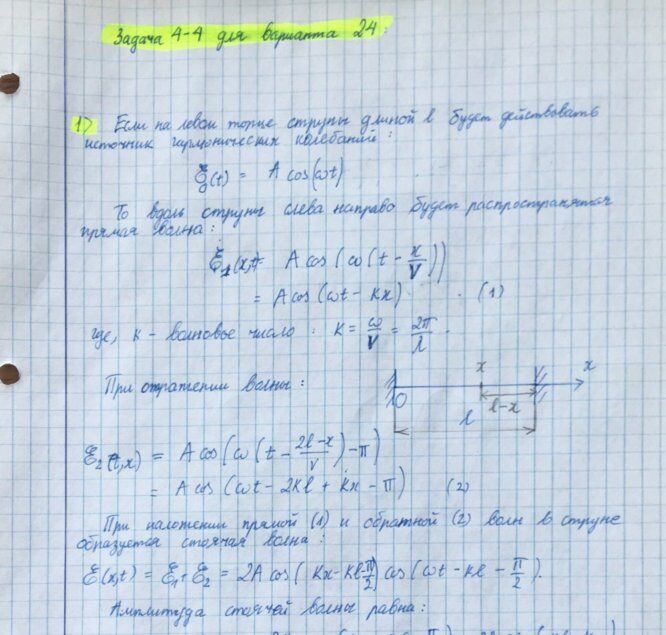 Задача 4-4 для варианта 24:
1) Если на левом торце струны длиной l будет действовать
источник гармонических колебаний:
ξ₀(t) = A cos(ωt)
То вдоль струны слева направо будет распространятся
прямая волна:
ξ₁(x,t) = A cos(ω(t - x/V))
= A cos(ωt - kx) . (1)
где, k - волновое число : k = ω/V = 2π/λ .
При отражении волны:
x x
O l-x
l
ξ₂(t,x) = A cos(ω(t - (2l-x)/V) - π)
= A cos(ωt - 2kl + kx - π) (2)
При наложении прямой (1) и обратной (2) волн в струне
образуется стоячая волна:
ξ(x,t) = ξ₁+ξ₂ = 2A cos(kx - kl - π/2) cos(ωt - kl - π/2).
Амплитуда стоячей волны равна: